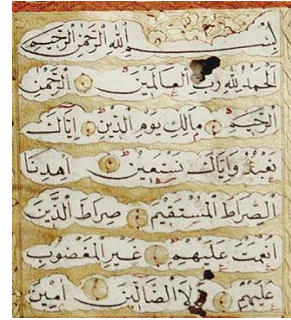 بِسْمِ اللهِ الرَّحْمٰنِ الرَّحِيمِ
اَلْحَمْدُ لِلّٰهِ رَبِّ الْعَالَمِينَ الرَّحْمٰنِ
الرَّحِيمِ مَالِكِ يَوْمِ الدِّينِ اِيَّاكَ
نَعْبُدُ وَاِيَّاكَ نَسْتَعِينُ اِهْدِنَا
الصِّرَاطَ الْمُسْتَقِيمَ صِرَاطَ الَّذِينَ
اَنْعَمْتَ عَلَيْهِمْ غَيْرِ الْمَغْضُوبِ
عَلَيْهِمْ وَلَا الضَّالِّينَ اٰمِينَ